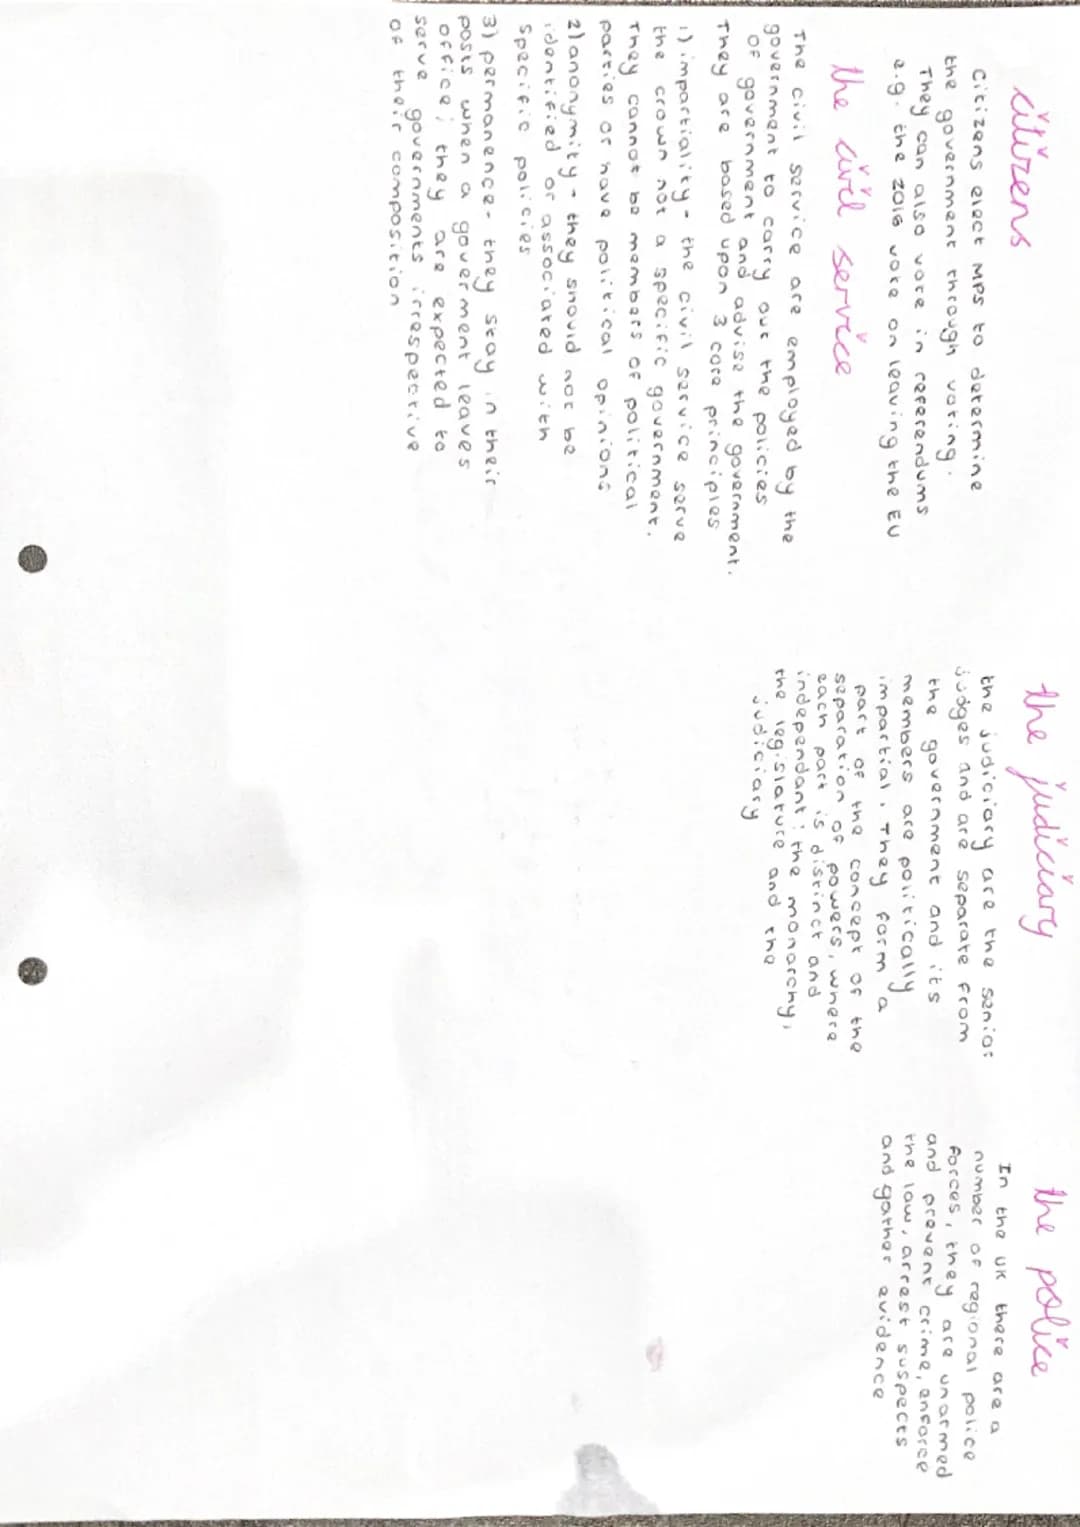 citizens
Citizens elect MPs to determine
the government through voting.
They can also vote in referendums
e.g. the 2016 vote on leaving the EU
the civil service
The civil service are employed by the
government to carry out the policies
of government and advise the government.
They are based upon 3 core principles
1) impartiality - the civil service serve
the crown not a specific government.
They cannot be members of political
parties or have political opinions
2) anonymity - they should not be
identified or associated with
specific policies
3) permanence - they stay in their
posts when a goverment leaves
office; they are expected to
serve governments irrespective
of their composition
the judiciary
the judiciary are the senior
judges and are separate from
the government and its
members are politically
impartial. They form a
part of the concept of the
separation of powers, where
each part is distinct and
independant: the monarchy,
the legislature and the
judiciary
the police
In the UK there are a
number of regional police
forces, they are unarmed
and prevent crime, enforce
the law, arrest suspects
and gather evidence